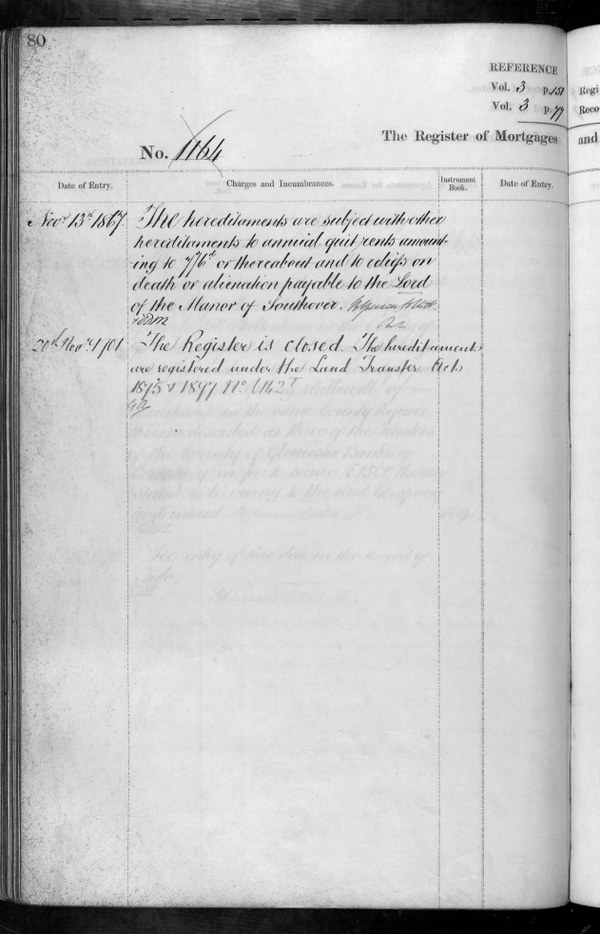 80
REFERENCE
Vol. 3 p. 151
Vol. 3 p. 79
The Register of Mortgages
Regi
Reco
and
No. 1164
Date of Entry.
Charges and Incumbrances.
Instrument Book.
Date of Entry.
Novr 13th 1867
The hereditaments are subject with other
hereditaments to annual quit rents amount-
ing to 7/6d or thereabout and to reliefs on
death or alienation payable to the Lord
of the Manor of Southover.
20th Novr 1901
The Register is closed. The hereditaments
are registered under the Land Transfer Acts
1875 & 1897 No